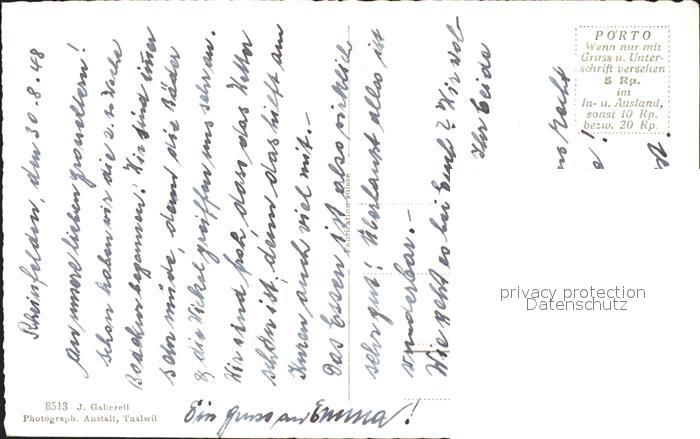 Rheinfelden, den 30.8.48
An unsere lieben Grosseltern!
Schon haben wir die 2. Woche
Baden begonnen! Wir sind immer
sehr müde, denn die Bäder
& die Wickel greiffen uns sehr an.
Wir sind froh, dass das Wetter
schön ist, denn das hilft am
Kuren auch viel mit.-
Das Essen ist also wirklich
sehr gut! Überhaupt alles ist
wunderbar.-
Wie geht es bei Euch? Wir
Ihr beide
Ein Gruss an Emma!
PORTO
Wenn nur mit
Gruss u. Unter-
schrift versehen
5 Rp.
im
In- u. Ausland,
sonst 10 Rp.
bezw. 20 Rp.
privacy protection
Datenschutz
Fabrication Suisse
8513 J. Gaberell
Photograph. Anstalt, Thalwil